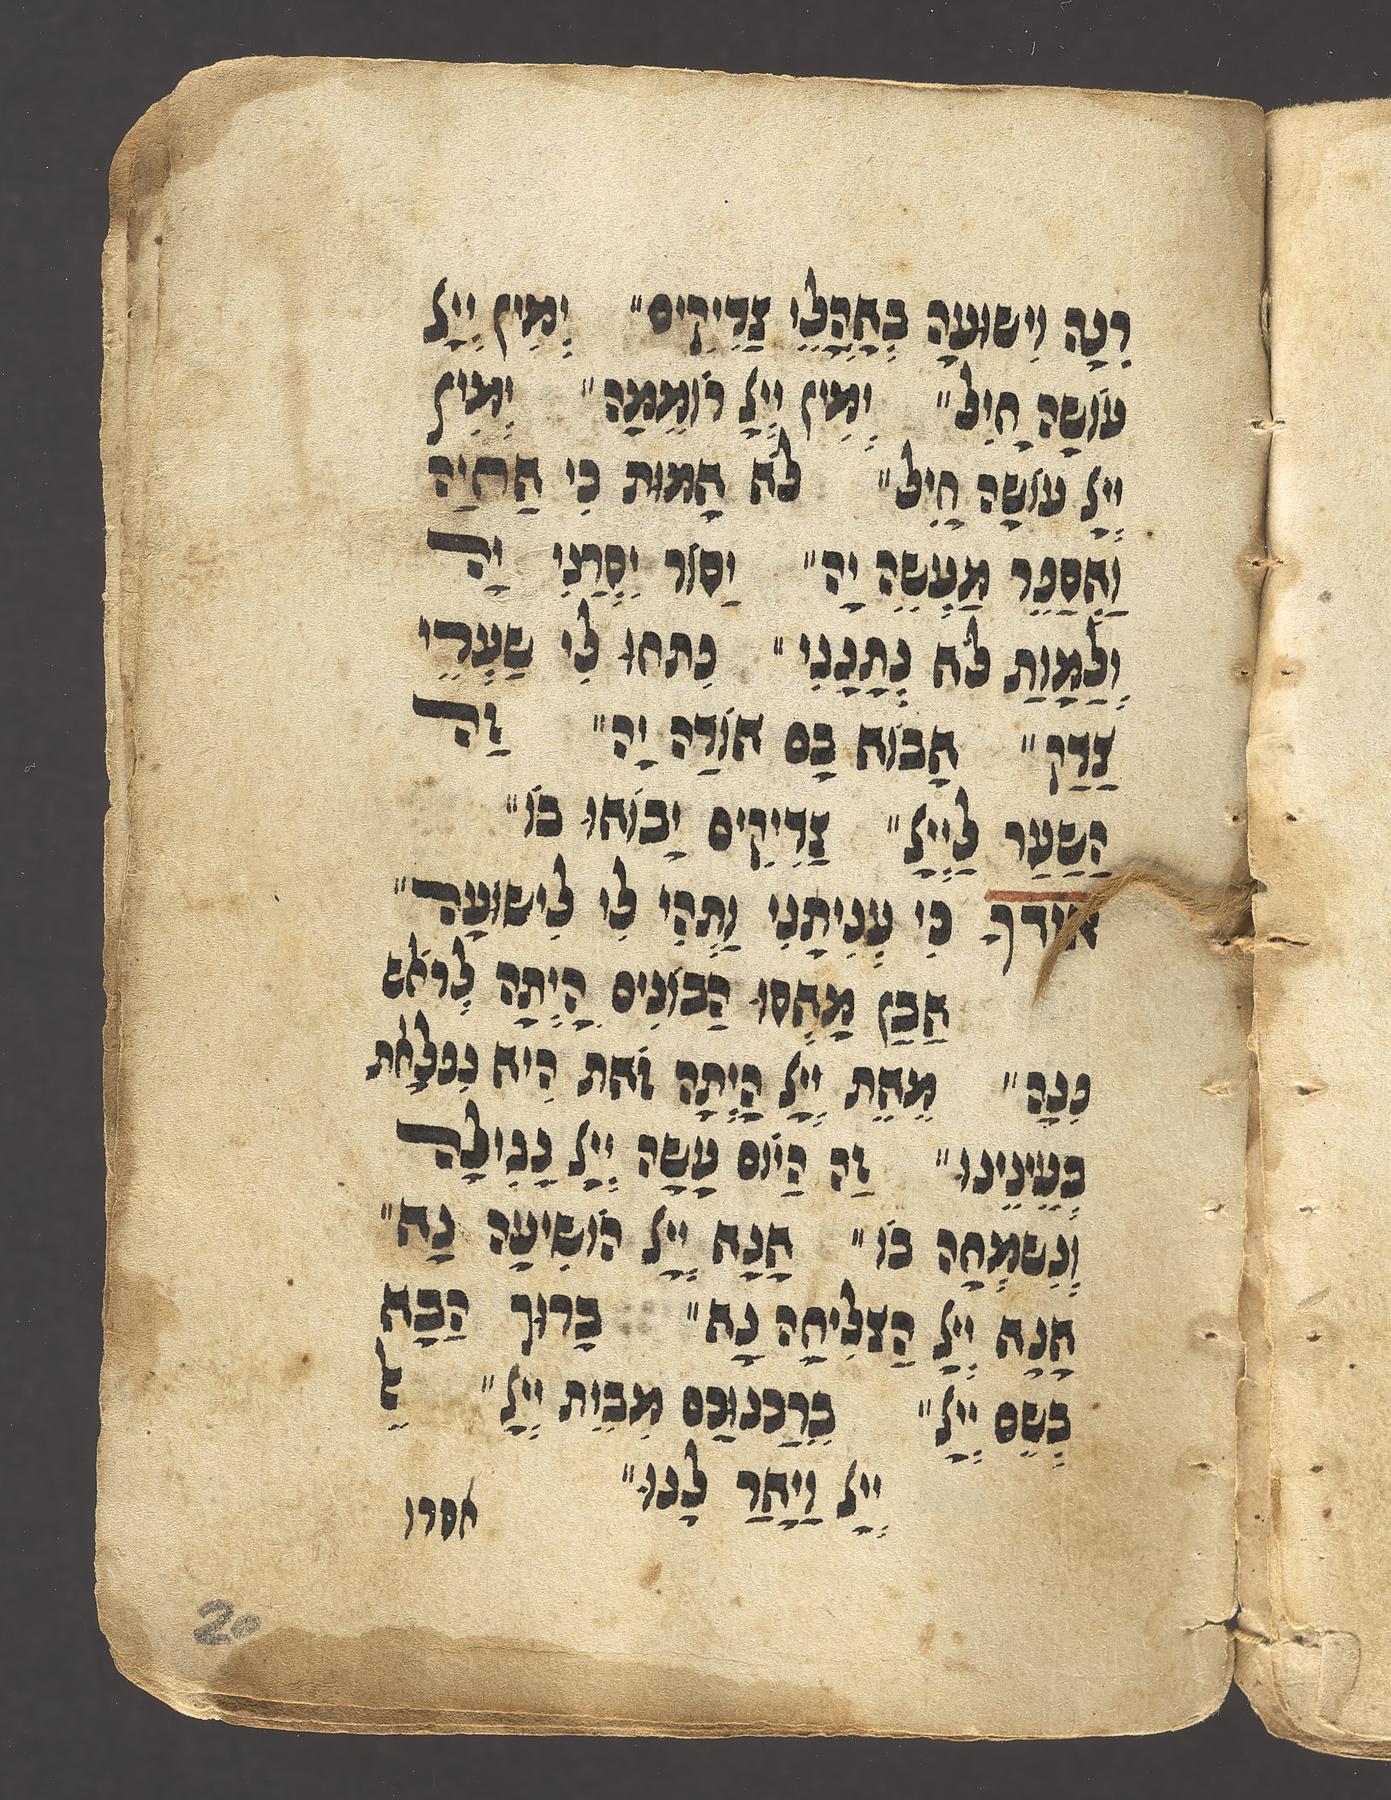 רִנָה וִישוּעָה בְאָהֳלֵי צַדִיקִים" יְמִין יְיָל
עוֹשָה חַיִל" יְמִין יְיָל רוֹמֵמָה" יְמִין
יְיָל עוֹשָה חָיִל" לֹא אָמוּת כִי אַחְיַה
וַאֲסַפֵר מַעֲשֵה יָה" יַסוֹר יִסְרַנִי יָה
וְלַמָוַת לֹא נְתָנָנִי" פִתחוּ לִי שַעֲרֵי
צַדַק" אָבוֹא בָם אוֹדַה יָה" זַה
הַשַעַר לַיְיָל" צַדִיקִים יָבוֹאוּ בוֹ"
אודךָ כִי עֲנִיתָנִי וַתְהִי לִי לִישוּעָה"
אַבַן מָאֲסוּ הַבוֹנִים הָיְתָה לְרֹאש
פִנָה" מֵאֵת יְיָל הָיְתָה זֹאת הִיא נִפלָאת
בְעֵינֵינוּ" זַה הַיוֹם עָשָה יְיָל נָגִילָה
וְנִשמְחָה בוֹ" אָנָא יְיָל הוֹשִיעָה נָא"
אָנָא יְיָל הַצלִיחָה נָא" בָרוּך הַבָא
בְשֵם יְיָל" בֵרַכנוּכַם מִבֵית יְיָל" אֵל
יְיָל וַיָאַר לָנוּ"
אסרו
20